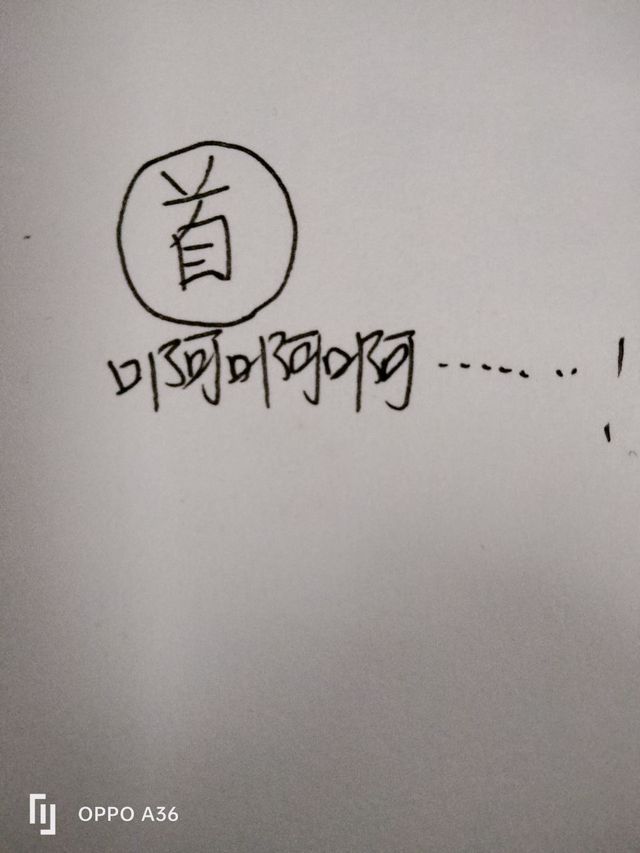 首
啊啊啊……!
OPPO A36